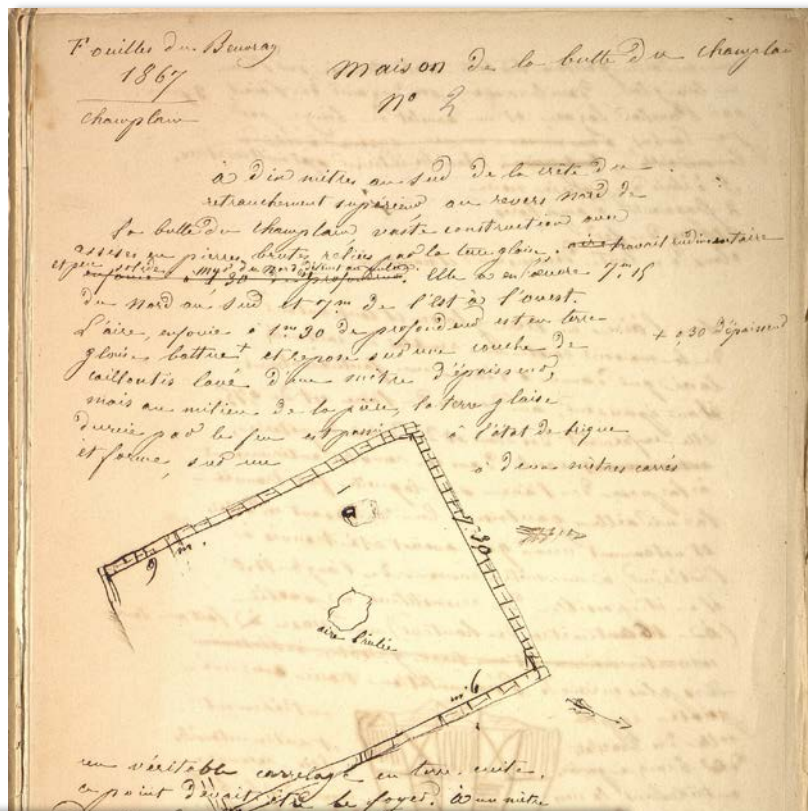 Fouilles du Beuvray
1867
Champlain
Maison de la butte du Champlain
N° 2
à dix mètres au sud de la crête du
retranchement supérieur au revers nord de
la butte du Champlain vaste construction avec
assises en pierres brutes reliées par la terre glaise. aire travail rudimentaire
et peu solide
enfouie à 1m30 de profondeur. Elle a en œuvre 7m,15
du nord au sud et 7m de l'est à l'ouest.
L'aire, enfouie à 1m30 de profondeur est en terre
glaise battue + et repose sur une couche de
+ 0,30 d'épaisseur
cailloutis lavé d'un mètre d'épaisseur,
mais au milieu de la pièce, la terre glaise
durcie par le feu est passée à l'état de brique
et forme, sur une
à deux mètres carrés
a
7.30
9 m.
aire brulée
m. 9
un véritable carrelage en terre cuite.
ce point devait être le foyer. à un mètre